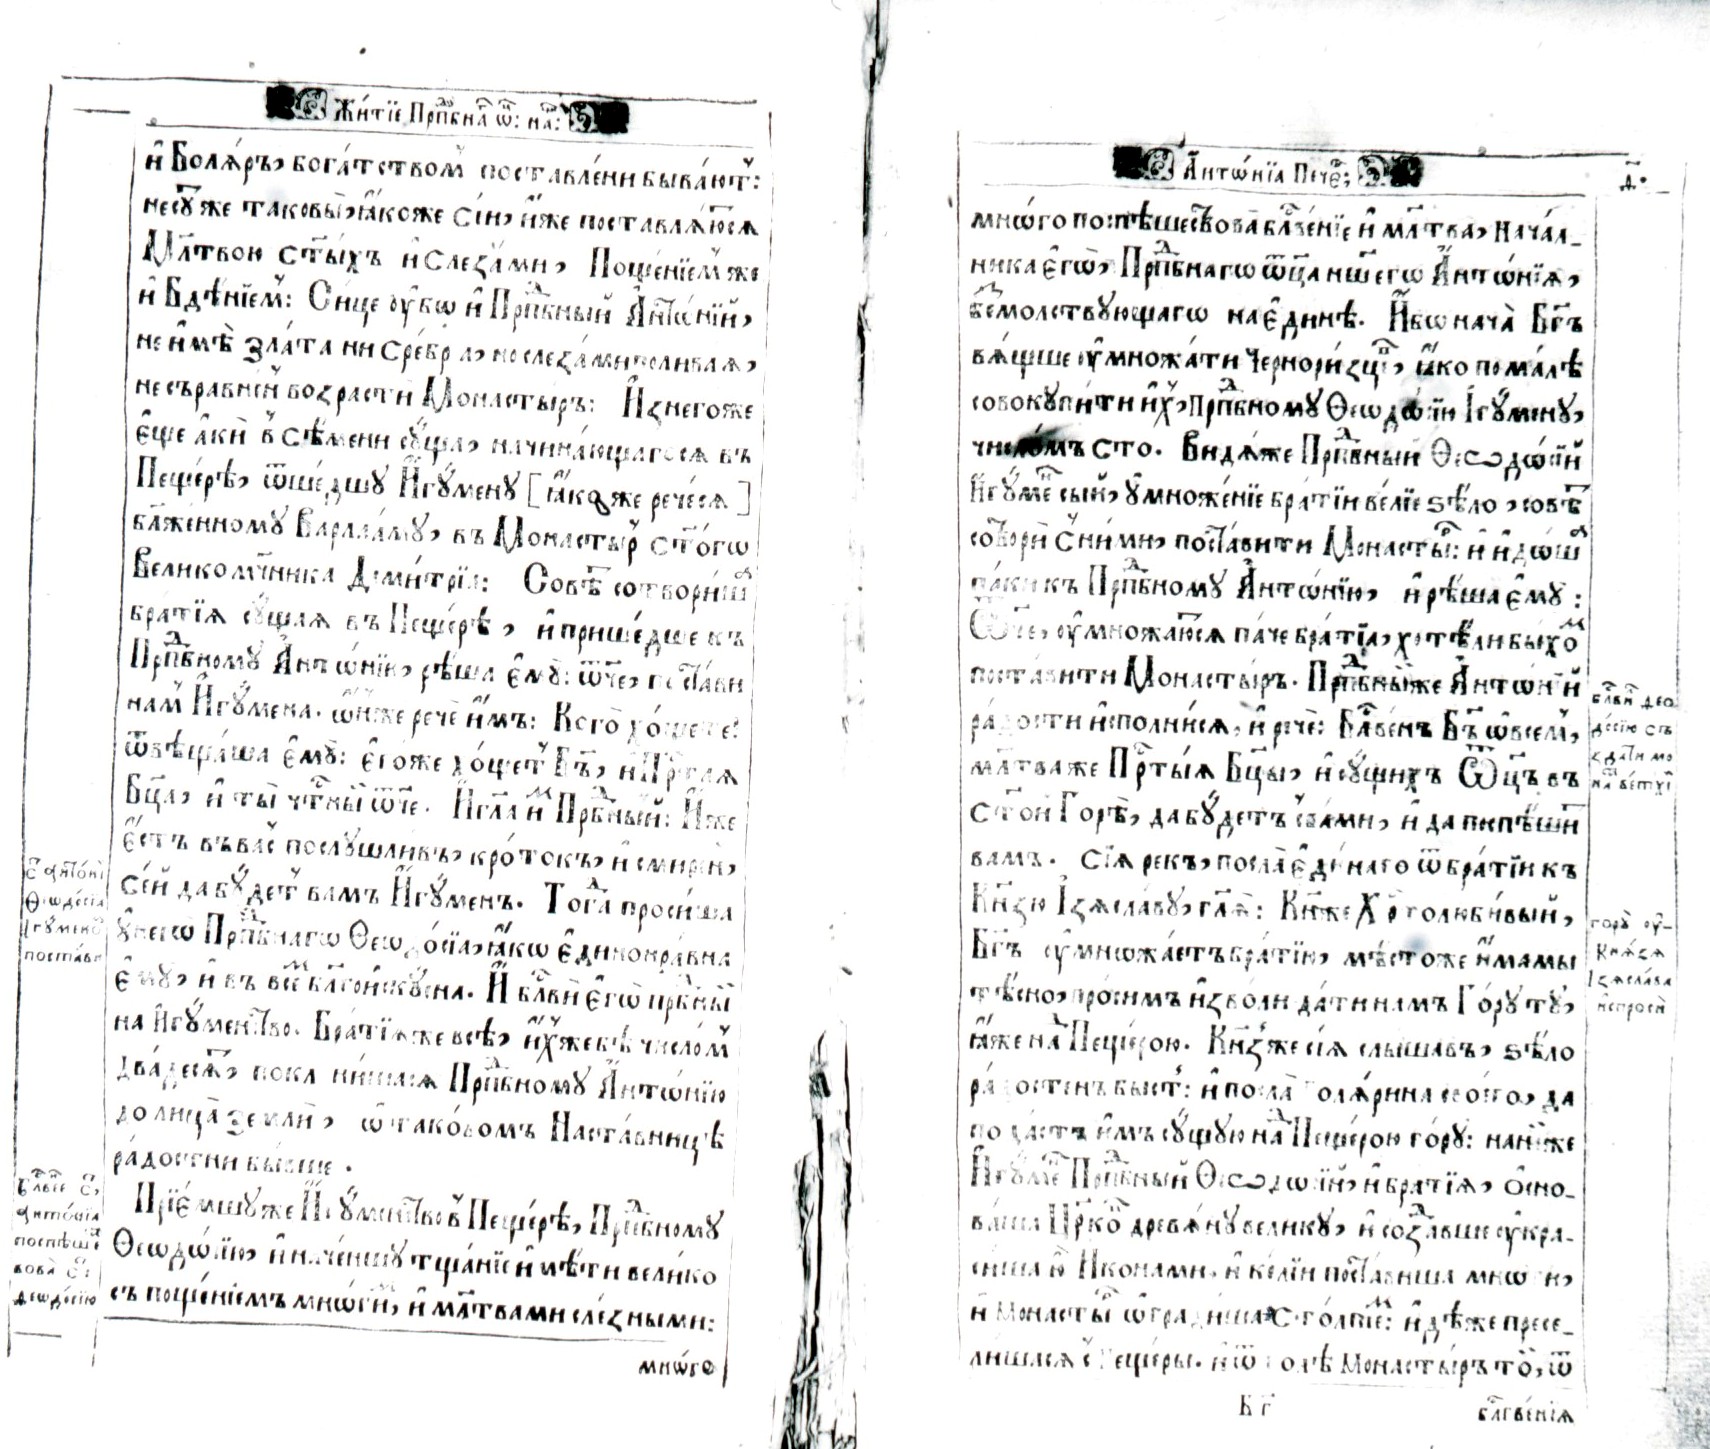 Жи́тїе Прпⷣбнаⷢ҇ ѿ: на́ⷲ:
и҆ Болѧ́ръ, бога́тством̾ поставле́ни быва́ют̾:
несꙋ́т же таковы̀, ꙗ҆́коже сі́и, и҆̀же поставлѧ́ютсѧ
Мл҃твою ст҃ы́хъ и҆ слеза́ми, Поще́нїем̾ же
и҆ Бдѣ́нїем̾: Си́це ᲂу҆́бѡ и҆ Прпⷣбный А҆нтѡ́нїй,
не и҆мѣ̀ зла́та ни сребра̀, но слеза́ми полива́ѧ,
несъравне́н̾ возрастѝ Монасты́ръ: И҆з̾негоже
є҆щѐ а҆́ки в̾ сѣ́мени сꙋ́ща, начина́ющагосѧ въ
Пеще́рѣ, ѿше́дшꙋ И҆гꙋ́менꙋ [ꙗ҆́коже рече́сѧ]
бл҃же́нномꙋ Варлаа́мꙋ, въ Монасты́р̾ ст҃о́гѡ
Великомч҃ника Дими́трїа: Совѣ́т сотвори́ша
бра́тїѧ сꙋ́щаѧ въ Пеще́рѣ, и҆ прише́дше къ
Прпⷣбномꙋ А҆нтѡ́нїю, рѣ́ша є҆мꙋ̀: ѿч҃е, поста́ви
нам̾ И҆гꙋ́мена. ѡ҆́нже речѐ и҆̀мъ: Кого̀ хо́щете?
ѿвѣща́ша є҆мꙋ̀: є҆го́же хо́щет̾ Бг҃ъ, и҆ Прⷭ҇таѧ
Бц҃а, и҆ ты̀ чтⷭ҇ны́й ѿч҃е. И҆ гл҃а и҆̀м Прпⷣбный: И҆́же
є҆́стъ въ ва́с̾ послꙋшли́въ, кро́токъ, и҆ смире́н̾,
се́й да бꙋ́дет̾ вамъ И҆гꙋ́менъ. Тогⷣа проси́ша
ᲂу҆ негѡ̀ Прпⷣбнагѡ Ѳеѡдо́сїа, ꙗ҆́кѡ є҆динонра́вна
є҆мꙋ̀, и҆ въ всеⷨ҇ благоискꙋ́сна. И҆ блⷭ҇вѝ є҆гѡ̀ прпⷣбный
на И҆гꙋме́нство. Бра́тїѧже всѣ̀, и҆́хже бѣ̀ число́м̾
два́десѧт, поклони́шасѧ Прпⷣбномꙋ А҆нтѡ́нїю
до лица̀ землѝ, ѡ҆ тако́вомъ Наста́вницѣ
ра́достни бы́вше.
Прїе́мшꙋже И҆гꙋме́нство в̾ Пеще́рѣ, Прпⷣбномꙋ
Ѳеѡдѡ́сїю, и҆ наче́ншꙋ тща́нїе и҆мѣ́ти вели́ко
съ поще́нїемъ мнѡ́ги́м, и҆ мл҃твами сле́зными:
мнѡ́гѡ
Сⷮ҇ Анто́ні
Ѳеѡдо́сїа
Ігꙋ́меноⷨ
поста́ви
Блⷭ҇ве́нїе Сⷮ҇:
Анто́нїа
поспѣше́ст
вова̀ Сⷮ҇:
Ѳеодо́сїю
А҆нтѡ́нїа Пече́рⷭ҇;
д҃.
мнѡ́го поспѣшествова̀ блⷭ҇ве́нїе и҆ мл҃тва, Нача́л-
ника є҆гѡ̀, Прпⷣбнагѡ ѿц҃а нш҃егѡ А҆нтѡ́нїѧ,
безмо́лствꙋющагѡ на є҆ди́нѣ. И҆́бо нача̀ Бг҃ъ
вѧ́щше ᲂу҆множа́ти Чернори́зцы, ꙗ҆́ко пома́лѣ
совокꙋпи́ти и҆́х, Прпⷣбномꙋ Ѳеѡдѡ́сїю І҆гꙋ́менꙋ,
число́мъ сто. Ви́дѧже Прпⷣбный Ѳеѡдѡ́сїй
И҆гꙋ́мен сы́й, ᲂу҆множе́нїе бра́тїи ве́лїе ѕѣ́ло, совѣ́т
сотворѝ с̾ ни́ми, поста́вити Монасты́р: и҆ и҆дѡ́ша
па́ки къ Прпⷣбномꙋ А҆нтѡ́нїю, и҆ рѣ́ша є҆мꙋ̀:
Ѿч҃е, ᲂу҆множа́ютсѧ па́че бра́тїа, хотѣ́ли бы́хоⷨ
поста́вити Монасты́ръ. Прпⷣбный же А҆нтѡ́нїй
ра́дости и҆спо́лнисѧ, и҆ речѐ: Блⷭ҇ве́нъ Бг҃ъ ѡ҆ все́м̾,
мл҃тваже Прⷭ҇ты́ѧ Бц҃ы, и҆ сꙋ́щихъ Ѿц҃ъ въ
ст҃о́й Горѣ̀, да бꙋ́детъ с̾ ва́ми, и҆ да поспѣши́т
вамъ. Сїѧ̀ рекъ, посла̀ є҆ди́наго ѿ бра́тїи къ
Кн҃зю І҆зѧсла́вꙋ, гл҃ѧ: Кн҃же Хрⷭ҇толюби́вый,
Бг҃ъ ᲂу҆множа́етъ бра́тїю, мѣ́стоже и҆́мамы
тѣ́сно, про́симъ и҆зво́ли да́ти намъ Го́рꙋ тꙋ̀,
ꙗ҆́же над Пеще́рою. Кн҃зже сїѧ̀ слы́шавъ, ѕѣ́ло
ра́достенъ бы́ст̾: и҆ посла̀ Болѧ́рина своего̀, да
пода́стъ и҆̀мъ сꙋ́щꙋю над Пеще́рою го́рꙋ: на ней́же
И҆гꙋ́мен Прпⷣбный Ѳеѡдѡ́сїй, и҆ бра́тїѧ, ѻ҆сно-
ва́ша Цр҃ковь древѧ́нꙋ вели́кꙋ, и҆ созда́вше ᲂу҆кра-
си́ша ю҆̀ И҆ко́нами, и҆ ке́лїи поста́виша мнѡ́ги,
и҆ Монасты́р ѡ҆гради́ша столпїеⷨ: и҆дѣ́же пресе-
ли́шасѧ с̾ Пеще́ры. и҆ ѿто́лѣ Монасты́ръ то́й, ѿ
Б г҃
блгⷭ҇ве́нїѧ
Блⷭ҇ви́ Ѳео
до́сїю съ
зда́ти мо
наⷭ҇ ве́тхі
го́рꙋ ᲂу҆-
Кнѧ́зѧ
Ізѧсла́ва
и҆спросѝ